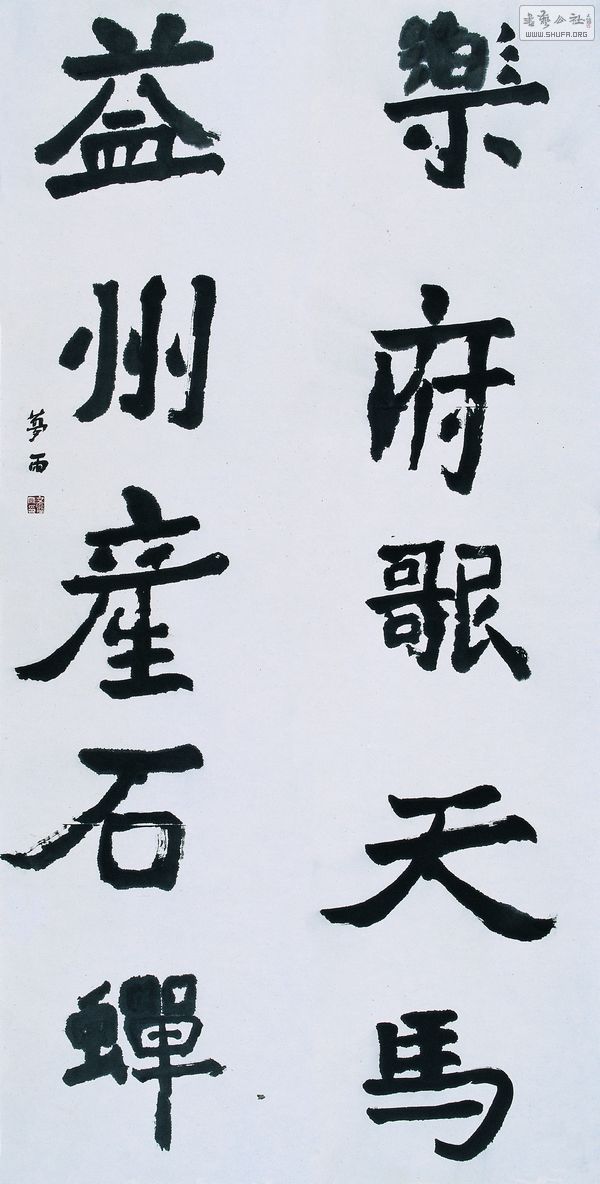 樂府歌天馬
益州産石蟬
夢雨
書藝公社
WWW.SHUFA.ORG